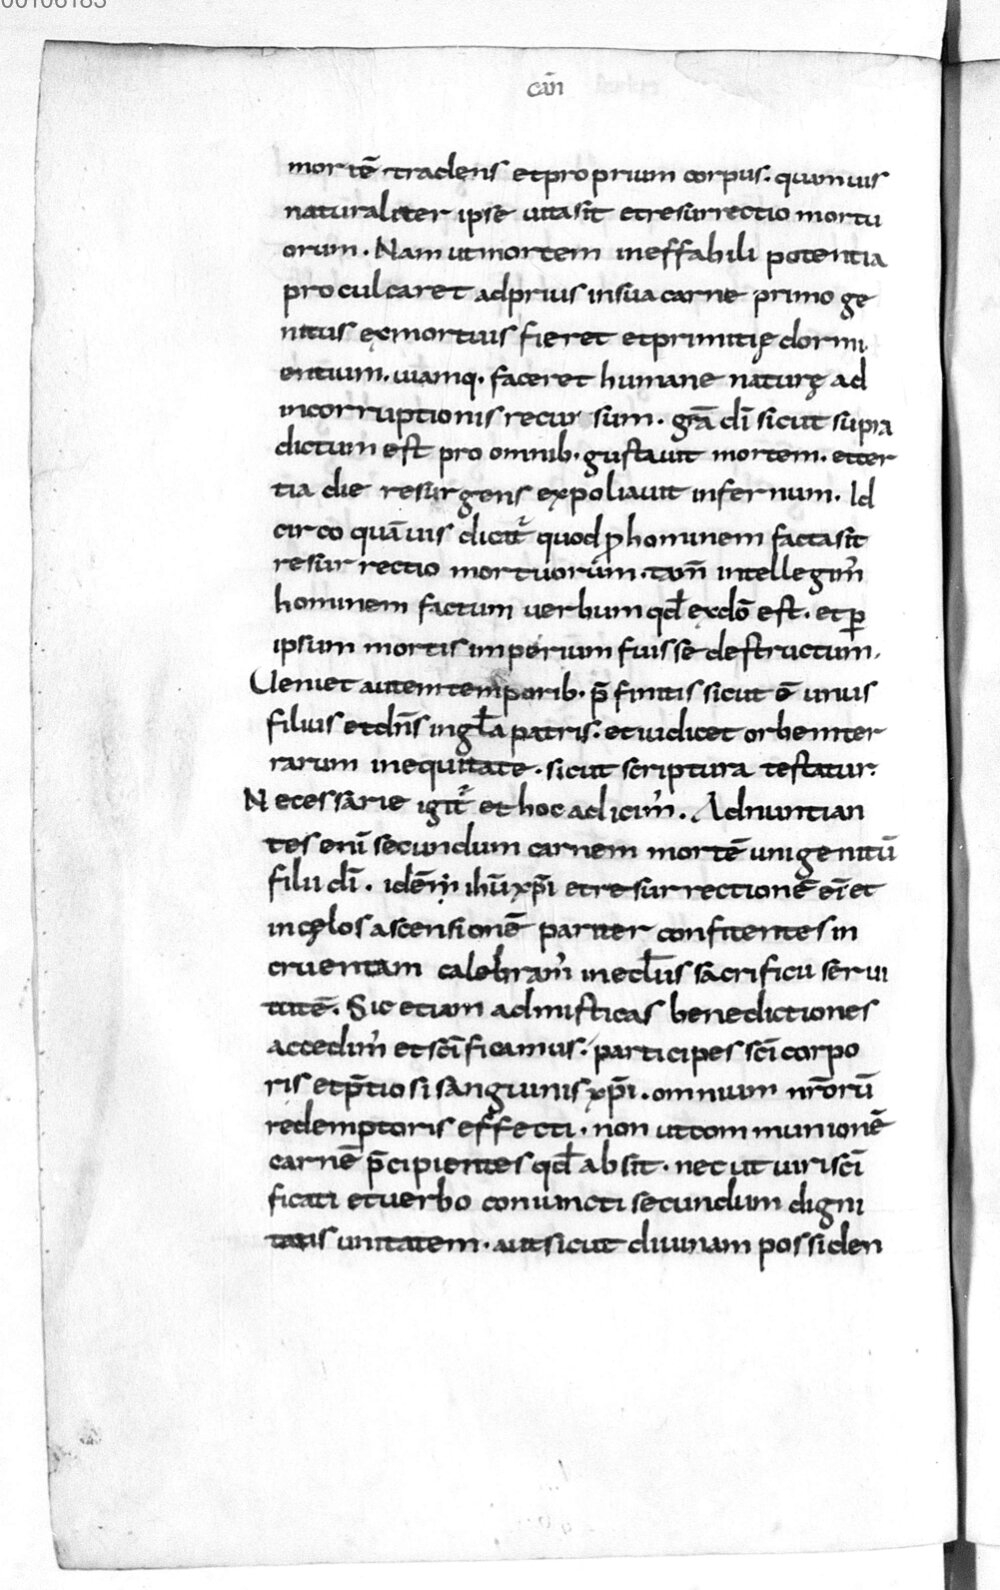 00106183
cāñ
mortē tradens et proprium corpus. quamuis
naturaliter ipse uita sit et resurrectio mortu
orum. Nam ut mortem ineffabili potentia
proculcaret ad prius in sua carne primoge
nitus ex mortuis fieret et primitię dormi
entium. uiamq. faceret humane naturę ad
incorruptionis recur sum. grā dī sicut supra
dictum est pro omnib. gustauit mortem. et ter
tia die resurgens expoliauit infernum. Id
circo quāuis dicit᷑ quod ꝑ hominem facta sit
resurrectio mortuorum. tam̄ intellegim̓
hominem factum uerbum qd̄ ex dō est. et ꝑ
ipsum mortis imperium fuisse destructum.
Ueniet autem temporib. p̄finitis sicut ē unus
filius et dn̄s in gl̄a patris. et iudicet orbem ter
rarum in equitate. sicut scriptura testatur.
Necessarie igit᷑ et hoc adicim̓. Adnuntian
tes enī secundum carnem mortē unigenitū
filii dī. idē m̄ ihū xp̄i et resurrectionē eī et
in cęlos ascensionē pariter confitentes in
cruentam calebram̓ in ecl̄iis sacrificii serui
tutē. Sic etiam ad misticas benedictiones
accedim̓ et scīficamus. participes scī corpo
ris et p̄tiosi sanguinis xp̄i. omnium nr̄orū
redemptoris effecti. non ut communionē
carnē p̄cipientes qd̄ absit. nec ut uiri scī
ficati et uerbo coniuncti secundum digni
tatis unitatem. aut sicut diuinam possiden